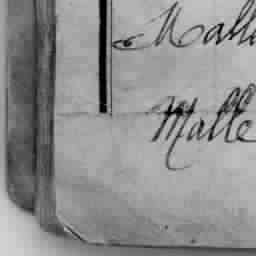 Malle
Malle